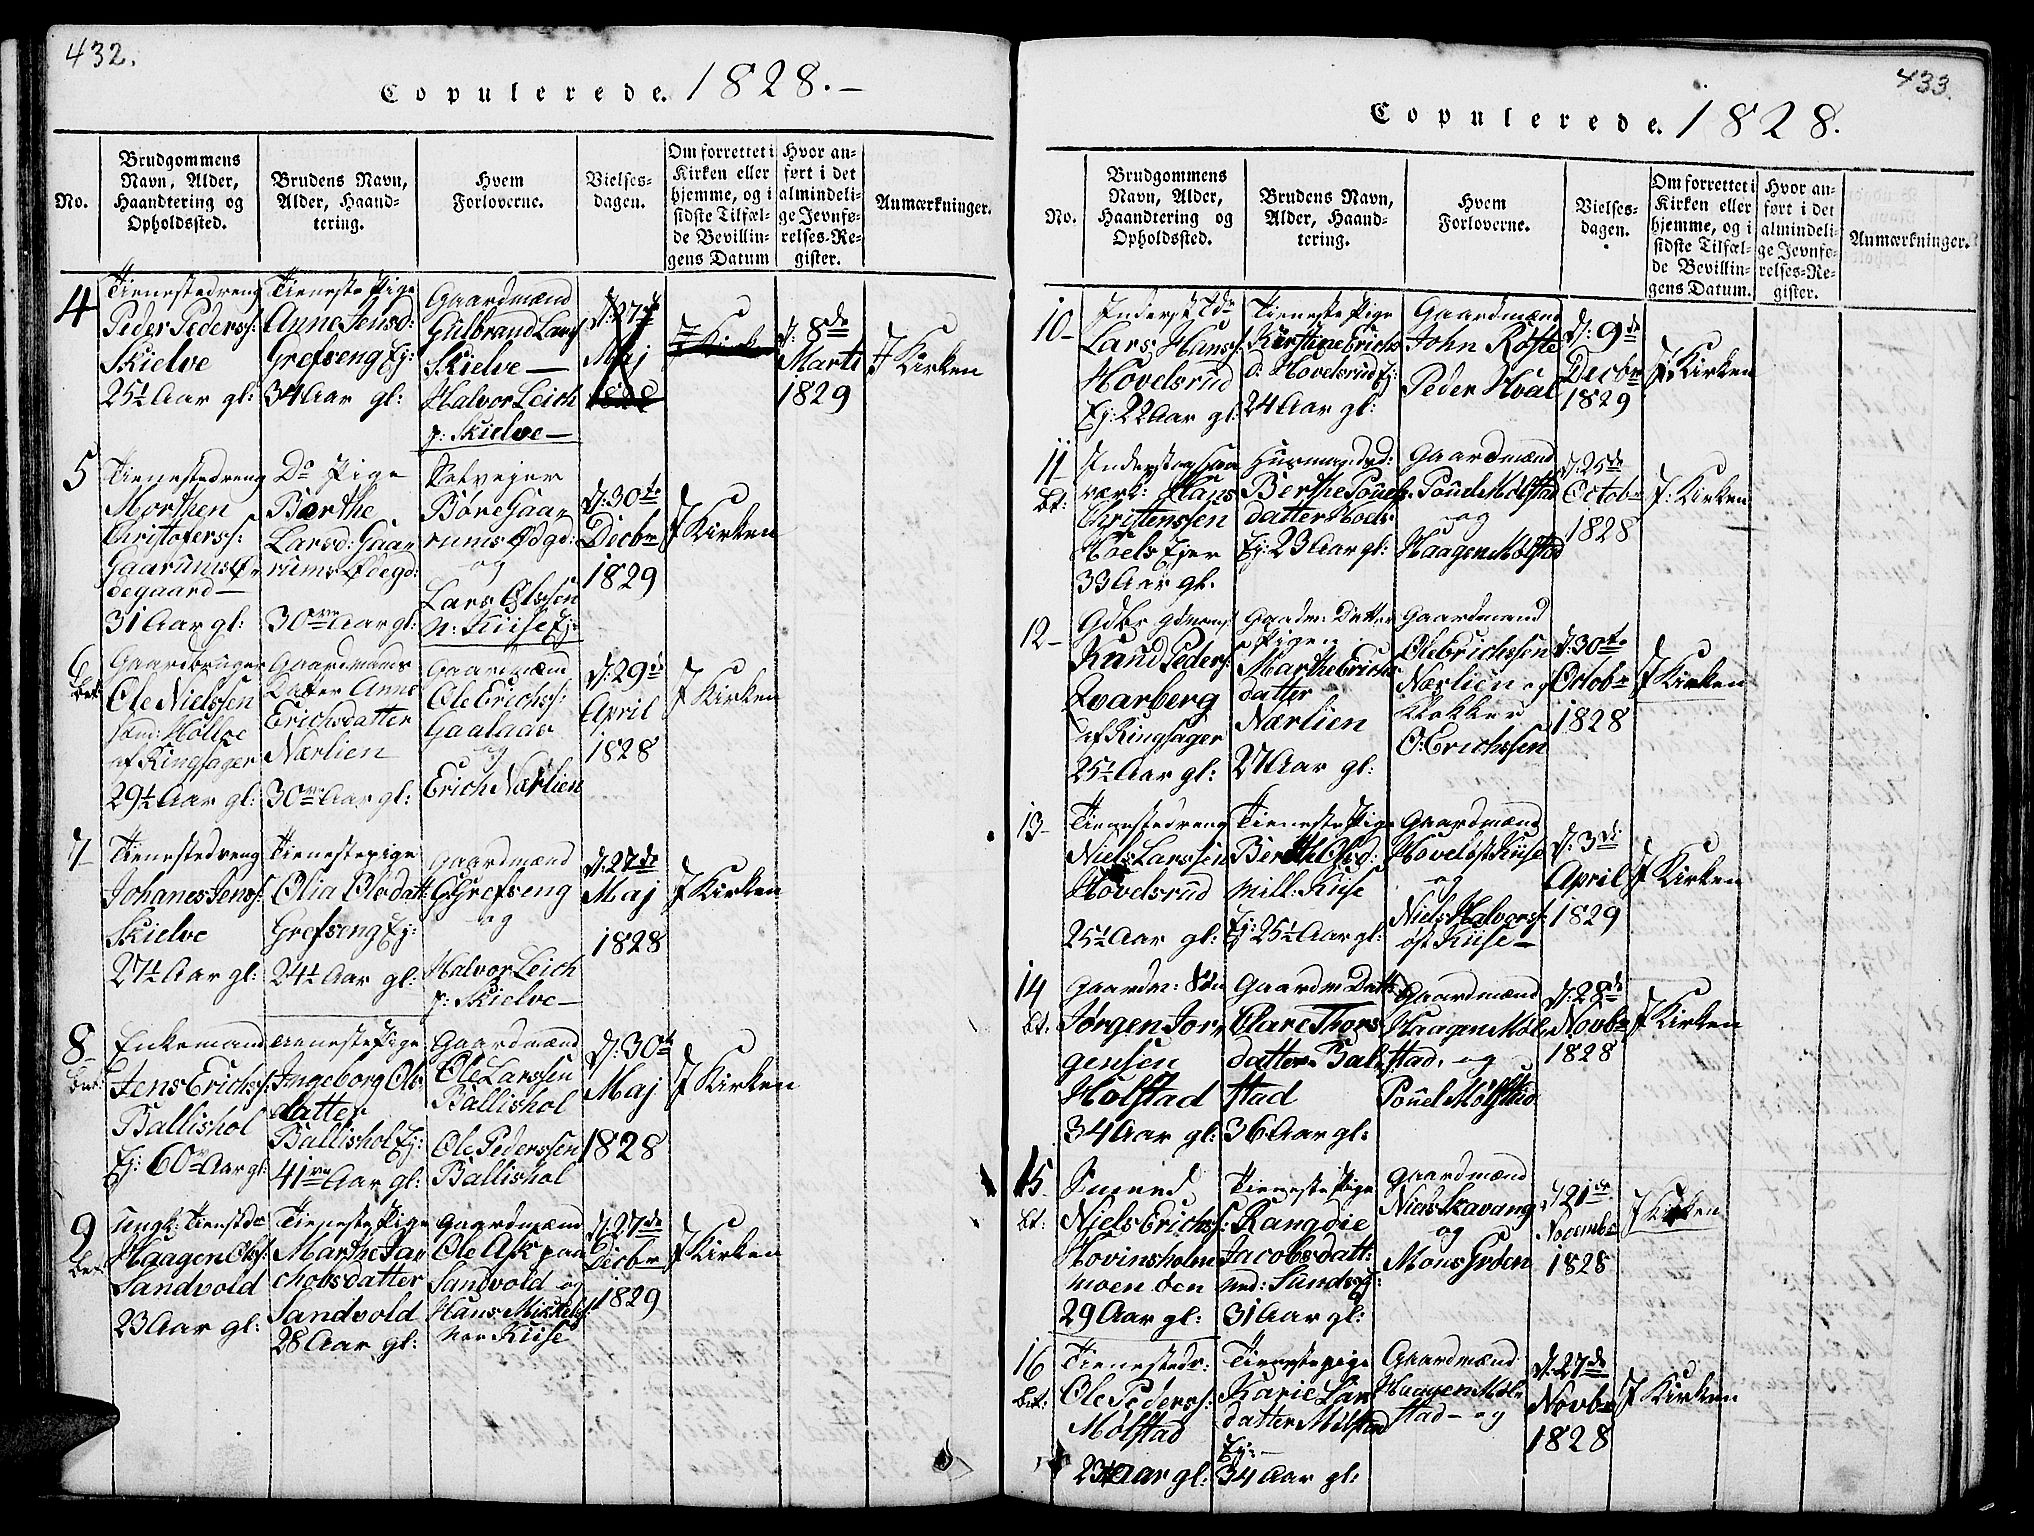 432.
Copulerede. 1828.-
No.
Brudgommens Navn, Alder, Haandtering og Opholdssted.
Brudens Navn, Alder, Haandtering.
Hvem Forloverne.
Vielsesdagen.
Om forrettet i Kirken eller hjemme, og i sidste Tilfælde Bevillingens Datum
Hvor anført i det almindelige Jevnførelses-Register.
Anmærkninger.
4
Tienestedreng
Peder Peders:
Skielve
25½ Aar gl:
Tieneste Pige
Anne Jensd:
Grefseng Ej:
34 Aar gl:
Gaardmænd
Gulbrand Lars
Skielve —
Halvor Leich
p: Skielve —
d: 27de
Maj
d: 8de
Marti
1829
J Kirken
5
Tienestedreng
Morthen
Christofers:
Gaarums Ø
degaard —
31 Aar gl:
Do Pige
Barthe
Larsd: Gaa
rums Ødegd:
30 Aar gl:
Selvejer
Børe Gaa
rums Ødgd:
og
Lars Olssen
n: Kiise Ej:
d: 30te
Decbr
1829
J Kirken
6
Bet:
Gaardbruger
Ole Nielssen
Hollve
af Ringsager
29½ Aar gl:
Gaardmands
Datter Anne
Erichsdatter
Nærlien
30 Aar gl:
Gaardmænd
Ole Erichs:
Gaalaas
og
Erich Nærlien
d: 29de
April
1828
J Kirken
7
Tienestedreng
Johanes Jens:
Skielve
27½ Aar gl:
Tienestepige
Olia Olsdatt:
Grefseng Ej:
24½ Aar gl:
Gaardmænd
G Grefseng
og
Halvor Leich
p: Skielve —
d: 27de
Maj
1828
J Kirken
8
Bet:
Enkemand
Jens Erichs:
Ballishol
Ej: 60 Aar gl:
Tieneste Pige
Ingeborg Ols
datter
Ballishol Ej:
41 Aar gl:
Gaardmænd
Ole Larssen
Ballishol
Ole Pederssen
Ballishol
d: 30te
Maj
1828
J Kirken
9
Bet:
Ungk: Tienstdr
Haagen Ols:
Sandvold
23 Aar gl:
Tieneste Pige
Marthe Ja
chobsdatter
Sandvold
28 Aar gl:
Gaardmænd
Ole Ask paa
Sandvold og
Hans Mikkels:
Nor Kiise
d: 27de
Decbr
1829
J Kirken
433.
Copulerede. 1828.
No.
Brudgommens Navn, Alder, Haandtering og Opholdssted.
Brudens Navn, Alder, Haandtering.
Hvem Forloverne.
Vielsesdagen.
Om forrettet i Kirken eller hjemme, og i sidste Tilfælde Bevillingens Datum.
Hvor anført i det almindelige Jevnførelses-Register.
Anmærkninger.
10
Lars Hans:
Hovelsrud
Ej: 22 Aar gl:
Tieneste Pige
Kirstine Erichs
d: Hovelsrud Ej:
24 Aar gl:
Gaardmænd
John Røste
Peder Hval
d: 9de
Decbr
1829
J: Kirken
11
Bt:
Hans
Christenssen
Hoels Ejer
33 Aar gl.
Berthe Pouels
datter Hoels
Ej: 23 Aar gl:
Gaardmænd
Pouel Mølstad
og
Haagen Mølstad
d: 25de
Octobr
1828
J: Kirken
12
Knud Peders:
Kvarberg
af Ringsager
25½ Aar gl:
Gaardm: Datter
Pigen
Marthe Erichs
datter
Nærlien
27 Aar gl:
Gaardmænd
Ole Erichssen
Nærlien og
Klokker
O: Erichssen
d: 30te
Octobr
1828
J Kirken
13
Tienestedreng
Niels Larssen
Hovelsrud
25½ Aar gl:
Tieneste Pige
Berthe Olsd:
mill: Kiise
Ej: 25½ Aar gl:
Gaardmænd
Hovel øst Kiise
og
Niels Halvors:
øst Kiise —
d: 3de
April
1829
J Kirken
14
Bt.
Gaardm: Søn
Jørgen Jor
gensen
Holstad
34 Aar gl:
Gaardm Datt:
Clare Thors
datter Bal
stad
36 Aar gl:
Gaardmænd
Haagen Møl
stad, og
Pouel Mølstad
d: 28de
Novbr
1828
J Kirken
15
Bt:
Smed
Niels Erichs:
Hovinsholm
moen den
29 Aar gl:
Tieneste Pige
Rangdie
Jacobsdatt:
ned: Sunds Ej:
31 Aar gl:
Gaardmænd
Niels Skavang
og
Mons Frøen
d 21de
Novembr
1828
J Kirken
16
Bet:
Tienestedr:
Ole Peders:
Mølstad
23½ Aar gl:
Tienestepige
Karie Lars
datter Mølstad
Ej: —
34 Aar gl:
Gaardmænd
Haagen Møl
stad — og
d: 27de
Novbr
1828
J Kirken